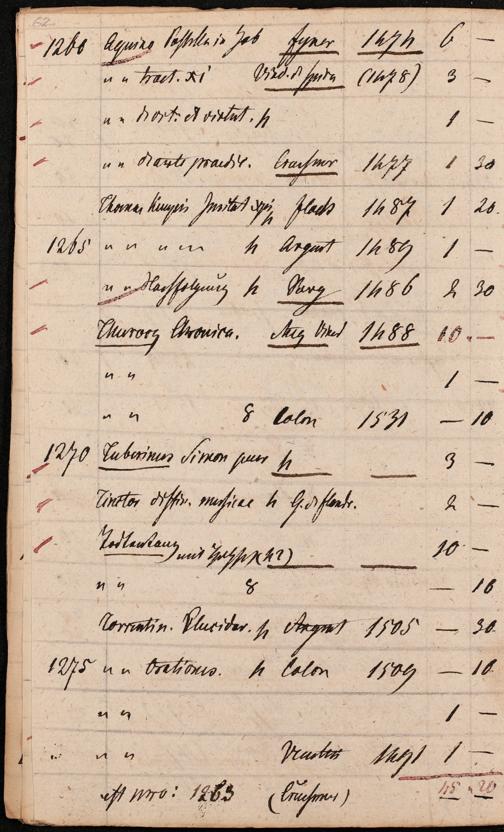 62
1260 Aquino Postilla in Job fyner 1474 6 —
" " tract. xi Vind. d spira (1478) 3 —
" " d'ort. et virtut. h 1 —
" " d'arte praedic. Creusner 1477 1 30
Thomas Kempis Imitat xpi h flach 1487 1 20
1265 " " " " " h Argent 1489 1 —
" " Nachfolgung h Varg 1486 2 30
Thurocz Chronica. Aug Vind 1488 10. —
" " 1 —
" " 8 Colon 1531 — 10
1270 Tuberinus Simon puer h 3 —
Tinctor diffin. musicae h G. d flandr. 2 —
Todtentanz mit 10 —
" " 8 — 16
Torrentin. Elucidar. h Argent 1505 — 30
1275 " " Orationes. h Colon 1509 — 10
" " 1 —
" " Venetiis 1491 1 —
1263 (Creusner) 45 . 26